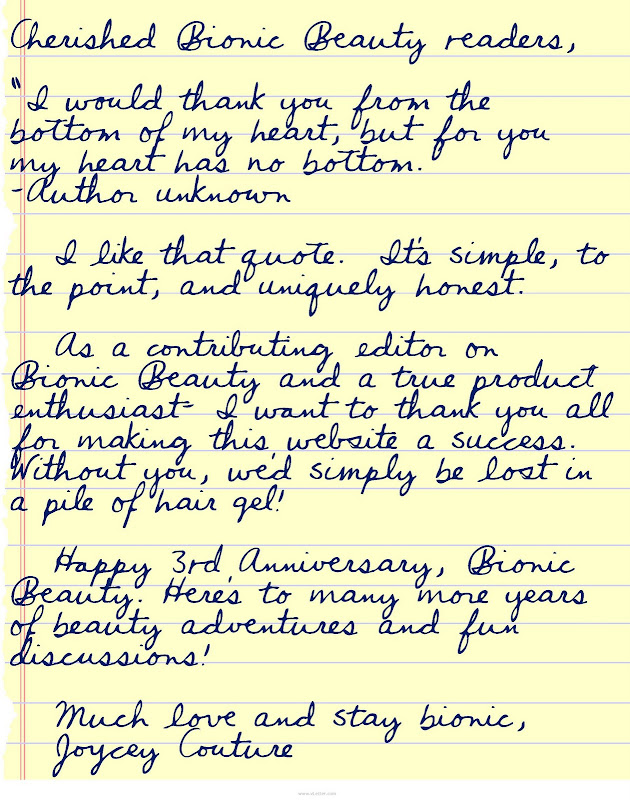 Cherished Bionic Beauty readers,
"I would thank you from the
bottom of my heart, but for you
my heart has no bottom."
-Author unknown
I like that quote. It's simple, to
the point, and uniquely honest.
As a contributing editor on
Bionic Beauty and a true product
enthusiast- I want to thank you all
for making this website a success.
Without you, we'd simply be lost in
a pile of hair gel!
Happy 3rd Anniversary, Bionic
Beauty. Here's to many more years
of beauty adventures and fun
discussions!
Much love and stay bionic,
Joycey Couture